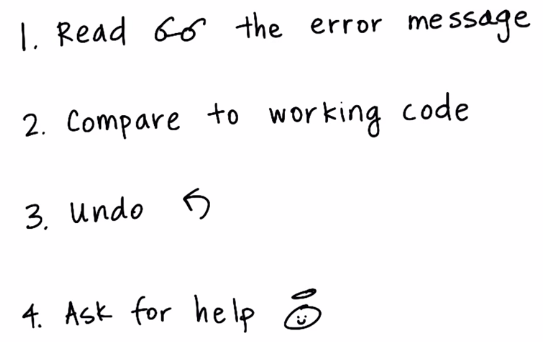 1. Read the error message
2. Compare to working code
3. Undo
4. Ask for help